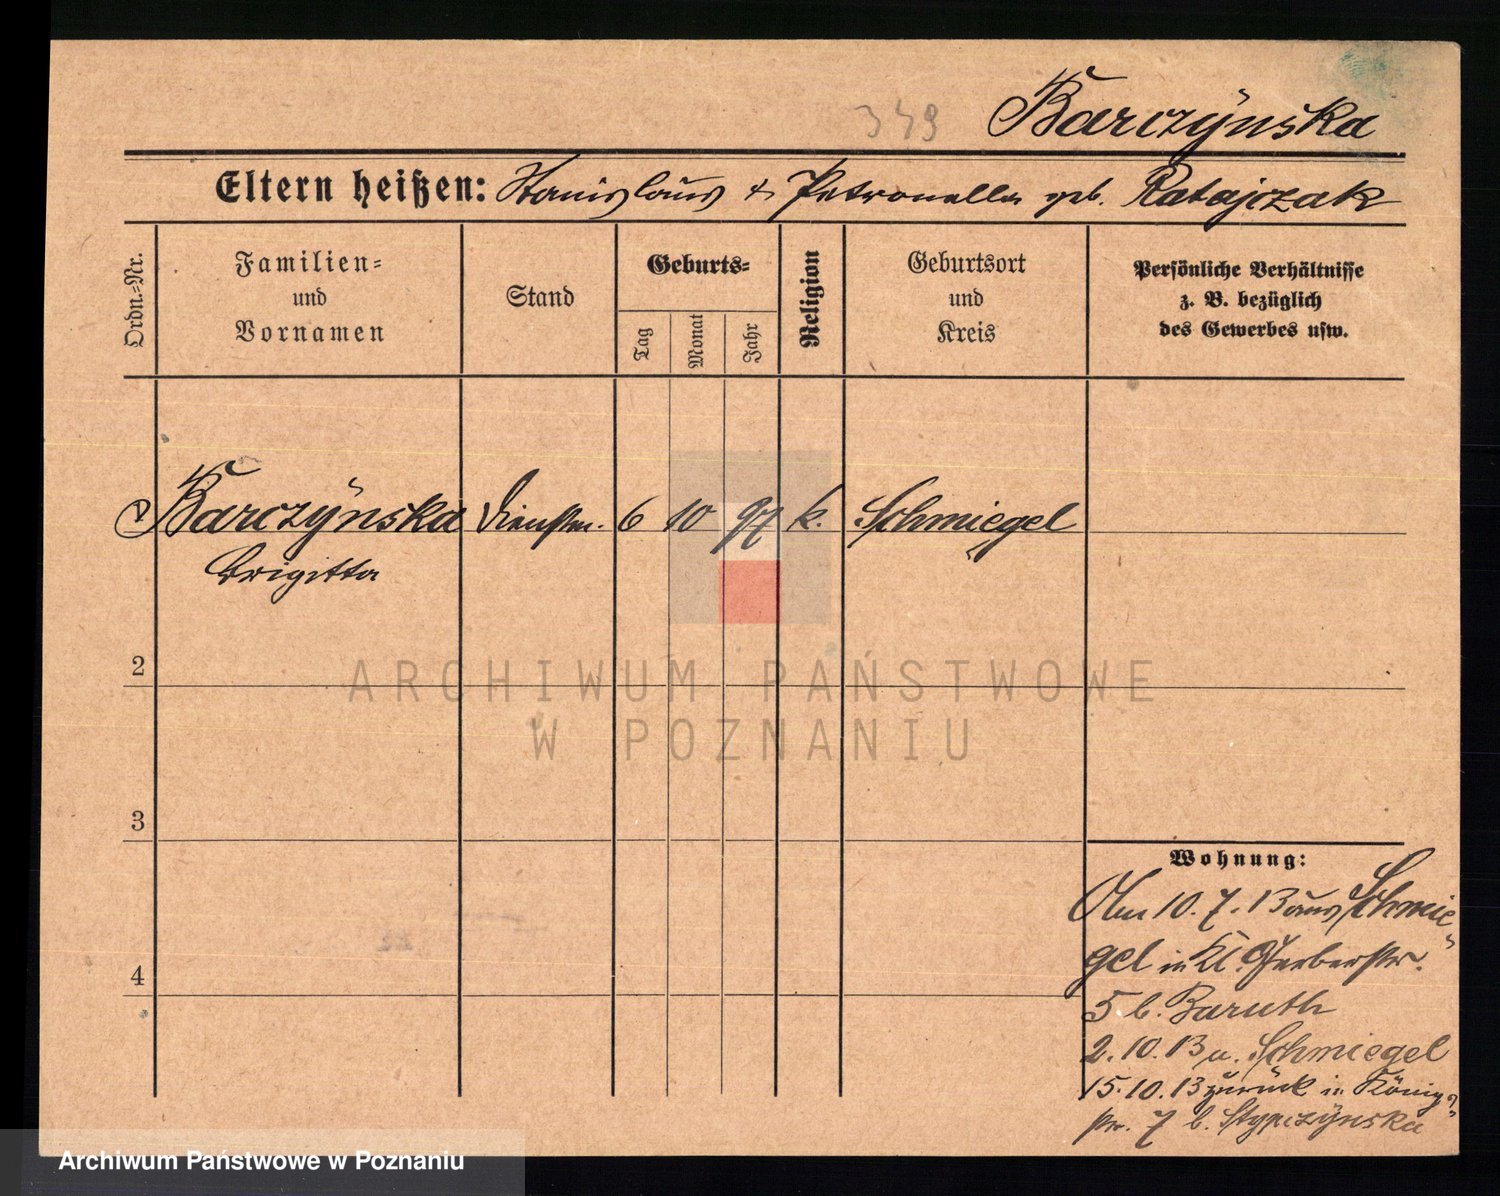 349 Barczÿnska
Eltern heißen: Stanislaus & Petronella geb. Ratajczak
Ordn.=Nr.
Familien=
und
Vornamen
Stand
Geburts=
Tag
Monat
Jahr
Religion
Geburtsort
und
Kreis
Persönliche Verhältnisse
z. B. bezüglich
des Gewerbes usw.
Barczÿnska Dienstm. 6 10 97 k. Schmiegel
Brigitta
2
ARCHIWUM PAŃSTWOWE
W POZNANIU
3
Wohnung:
Am 10.7.13 aus Schmie„
gel in Kl. Gerberstr.
4
5 b. Baruth
2.10.13 n. Schmiegel
15.10.13 zurück in König„
str. 7 b. Stypczÿnska
Archiwum Państwowe w Poznaniu